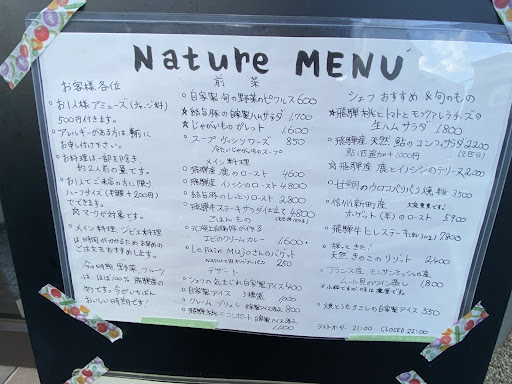 Nature MENU
お客様各位
・お1人様アミューズ(チャージ料)
500円付きます。
・アレルギーがある方は事前に
お申し付け下さい。
・お料理は一部を除き、
約2人前の量です。
・お1人でご来店の方に限り
ハーフサイズ(半額+200円)
でできます。
マークが対象です。
・メイン料理、ジビエ料理
は時間がかかるため お早めの
ご注文をおすすめ
致します。
今の時期、野菜、フルーツ
は、ほぼ100% 飛騨産
の物です。今がいちばん
おいしい時期です!
前菜
自家製 旬の野菜のピクルス 600
☆ 結旨豚の自家製ハムサラダ 1700
☆ じゃがいものガレット 1,000
・スープ ヴィシソワーズ 850
冷たいじゃがいものスープ
メイン料理
飛騨産 鹿のロースト 4600
飛騨産 イノシシのロースト 4800
結旨豚のしっとりロースト 2800
飛騨牛ステーキサラダ仕立て 4800
ごはんもの
元海上自衛隊が作る
エビのクリームカレー 1,600
Le Pain Mujoさんのバゲット
250
デザート
シェフの気まぐれ自家製アイス 400
自家製アイス 3種盛 1,000
クレームブリュレ 自家製アイス添え 800
のコンポート 自家製アイス添え
1,000
シェフ おすすめ & 旬のもの
☆飛騨桃とトマトとモッツァレラチーズの
生ハムサラダ 1800
飛騨産 天然 鮎のコンフィサラダ 2200
鮎1匹追加+1000円 (2匹分)
☆ 飛騨産 鹿とイノシシのテリーヌ 2200
甘鯛のウロコパリパリ焼 3500
信州新町産 大変貴重です!
ホゲット(羊)のロースト 5900
飛騨牛ヒレステーキ 7800
採ってきた!
天然きのこのリゾット 2400
フランス産 モンサンミッシェル産
ムール貝のワイン蒸し 1800
※小粒ですが味は濃厚です。
・焼とうもろこしの自家製アイス 550
ラストオーダー 21:00 CLOSED 22:00